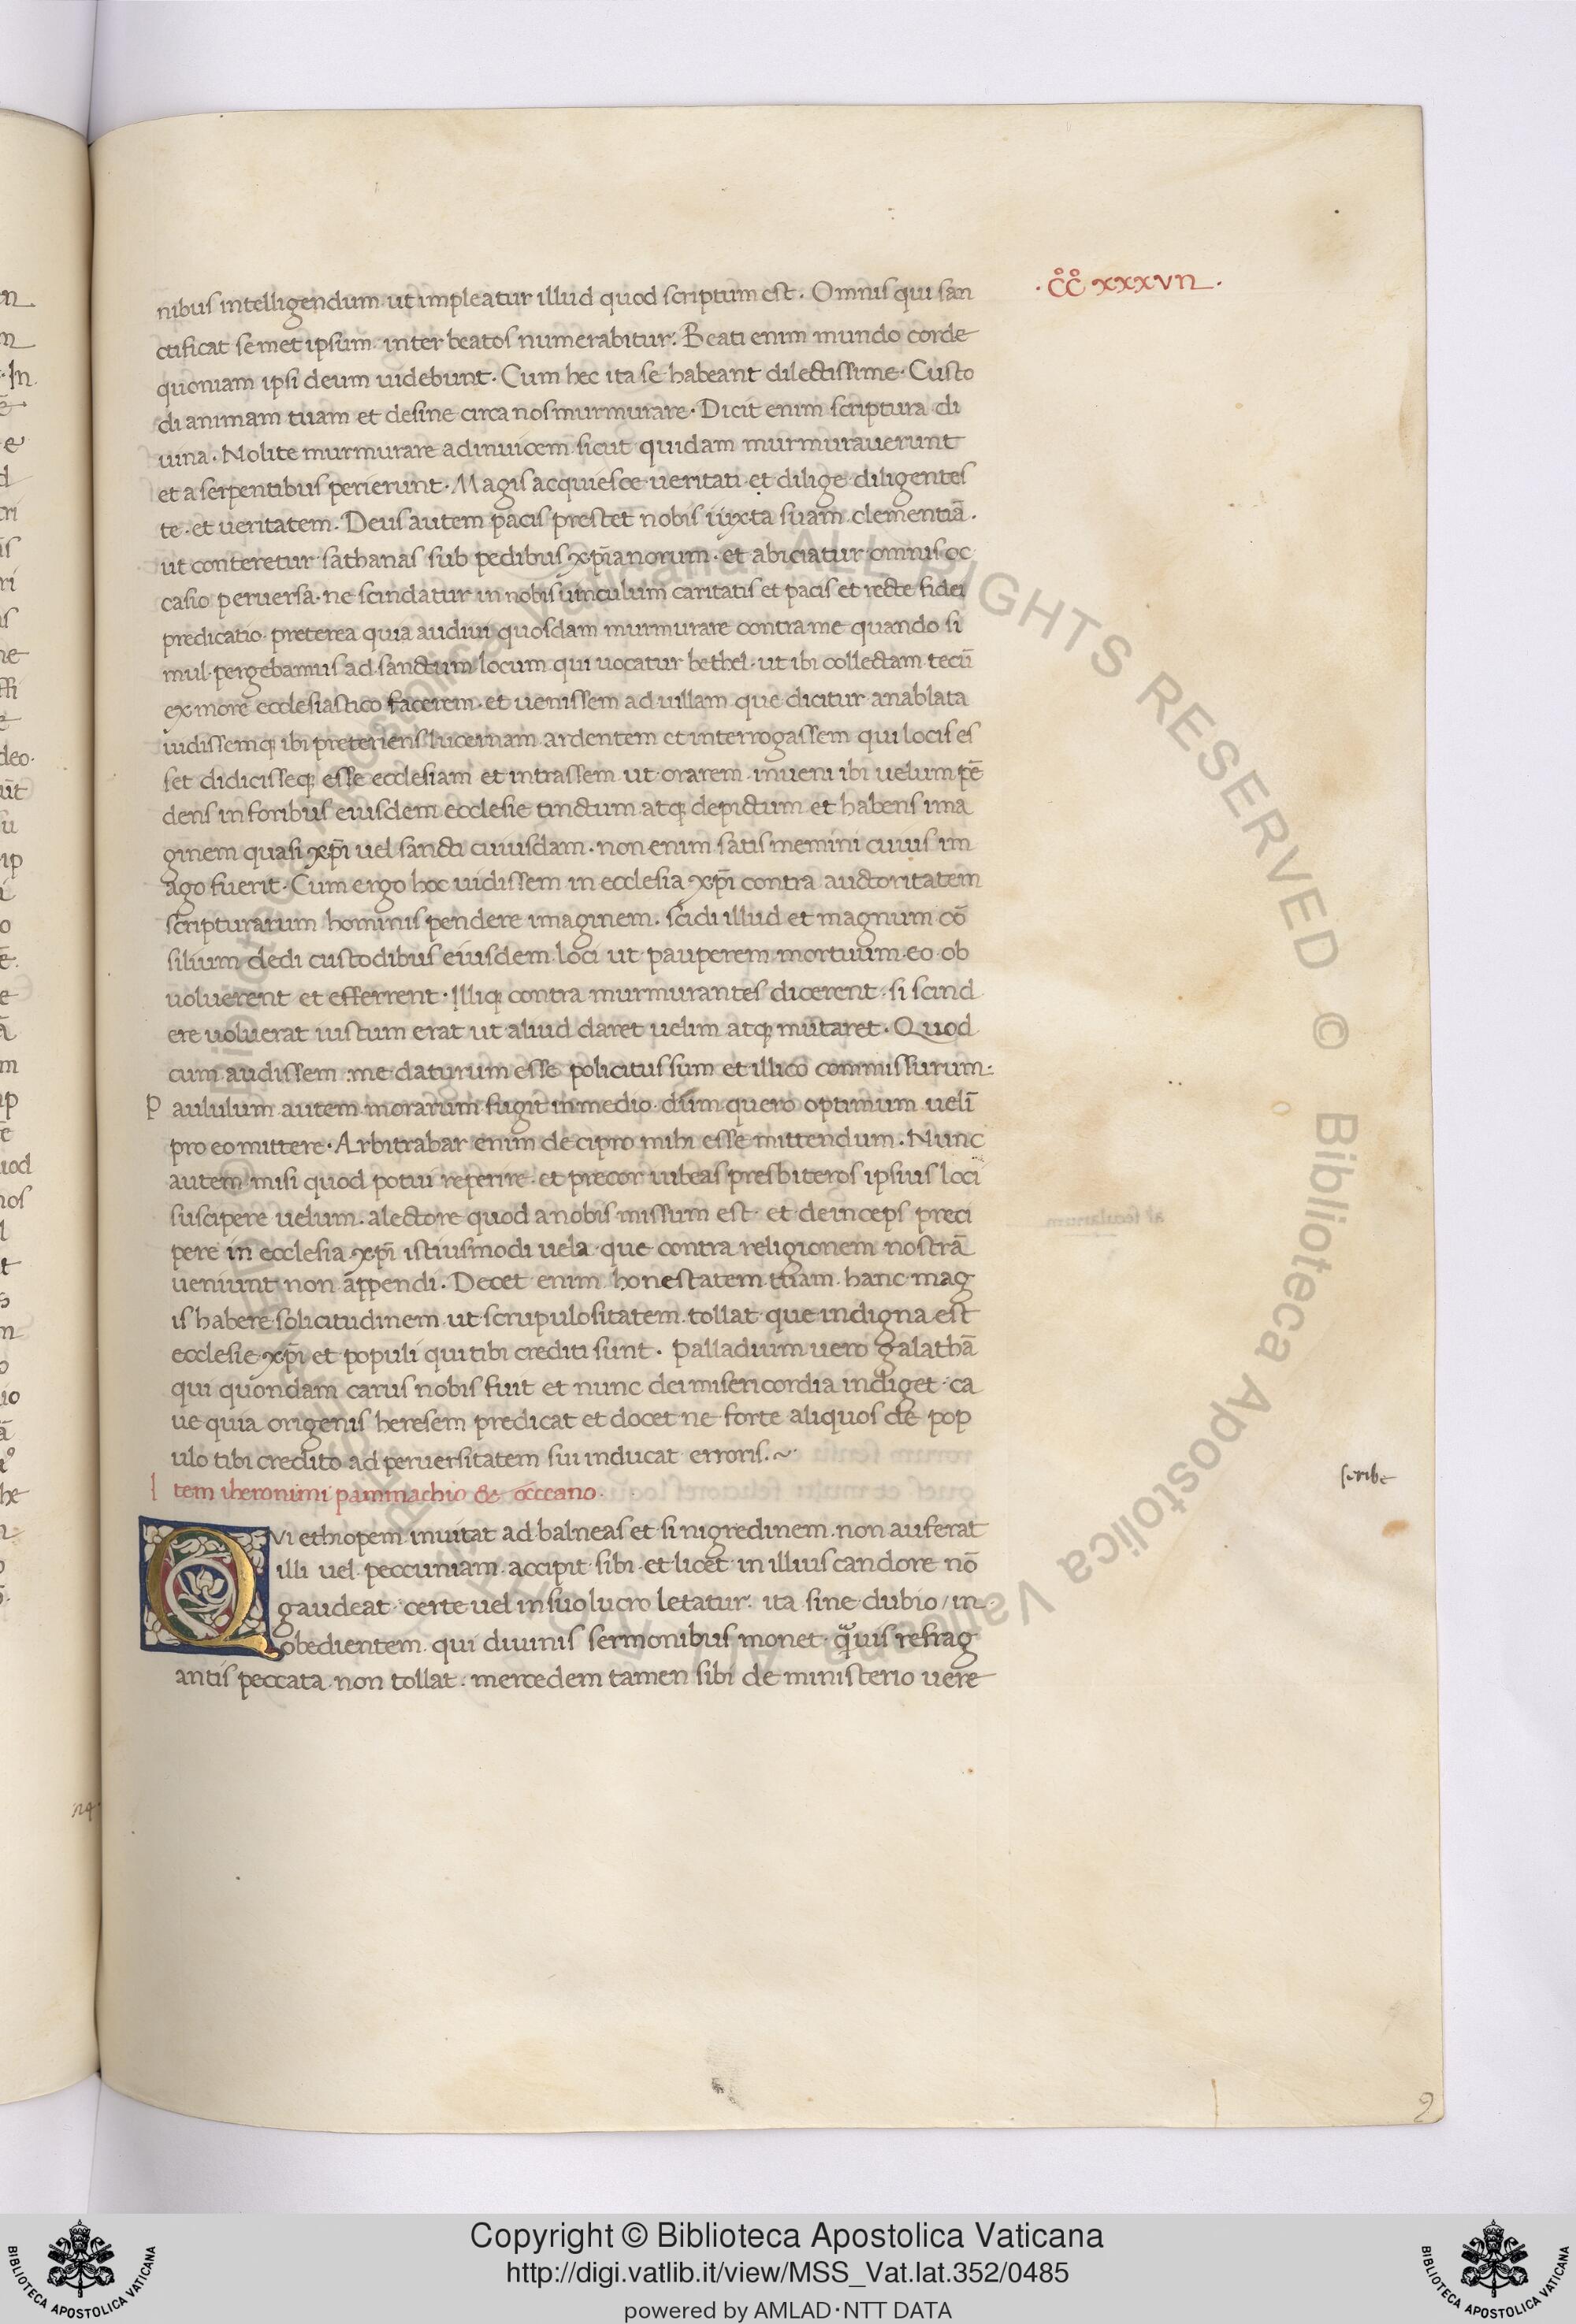 .CC XXXVII.
nibus intelligendum ut impleatur illud quod scriptum est. Omnis qui san
ctificat semet ipsum inter beatos numerabitur. Beati enim mundo corde
quoniam ipsi deum uidebunt. Cum hec ita se habeant dilectissime. Custo
di animam tuam et desine circa nos murmurare. Dicit enim scriptura di
uina. Nolite murmurare adinuicem sicut quidam murmurauerunt
et a serpentibus perierunt. Magis acquiesce ueritati et dilige diligentes
te. et ueritatem. Deus autem pacis prestet nobis iuxta suam clementiã.
ut conteretur sathanas sub pedibus xp̄ianorum. et abiciatur omnis oc
casio peruersa. ne scindatur in nobis uinculum caritatis et pacis et recte fidei
predicatio. preterea quia audiui quosdam murmurare contra me quando si
mul pergebamus ad sanctum locum qui uocatur bethel. ut ibi collectam tecũ
ex more ecclesiastico facerem. et uenissem ad uillam que dicitur anablata
uidissemq ibi preteriens lucernam ardentem et interrogassem qui locis es
set didicisseq esse ecclesiam et intrassem ut orarem inueni ibi uelum pẽ
dens in foribus eiusdem ecclesie tinctum atq depictum et habens ima
ginem quasi xp̄i uel sancti cuiusdam. non enim satis memini cuius im
ago fuerit. Cum ergo hoc uidissem in ecclesia xp̄i contra auctoritatem
scripturarum hominis pendere imaginem. scidi illud et magnum cõ
silium dedi custodibus eiusdem loci ut pauperem mortuum eo ob
uoluerent et efferrent. Illiq contra murmurantes dicerent. si scind
ere uoluerat iustum erat ut aliud daret uelim atq mutaret. Quod
cum audissem me daturum esse policitus sum et illico commissurum.
P aululum autem morarum fugit in medio dum quero optimum uelĩ
pro eo mittere. Arbitrabar enim de cipro mihi esse mittendum. Nunc
autem misi quod potui reperire. et precor iubeas presbiteros ipsius loci
suscipere uelum. alectore quod a nobis missum est. et deinceps preci
pere in ecclesia xp̄i istiusmodi uela que contra religionem nostrã
ueniunt non appendi. Decet enim honestatem ttiam hanc mag
is habere solicitudinem ut scrupulositatem tollat que indigna est
ecclesie xp̄i et populi qui tibi crediti sunt. Palladium uero galathã
qui quondam carus nobis fuit et nunc dei misericordia indiget ca
ue quia origenis heresem predicat et docet ne forte aliquos de pop
ulo tibi credito ad peruersitatem sui inducat erroris.~
I tem iheronimi pammachio & occeano.
Qvi ethiopem inuitat ad balneas et si nigredinem non auferat
illi uel peccuniam accipit sibi. et licet in illius candore nõ
gaudeat. certe uel in suo lucro letatur. ita sine dubio / in
obedientem qui diuinis sermonibus monet. q̃uis refrag
antis peccata non tollat. mercedem tamen sibi de ministerio uere
scribe
2
BIBLIOTECA APOSTOLICA VATICANA
Copyright © Biblioteca Apostolica Vaticana
http://digi.vatlib.it/view/MSS_Vat.lat.352/0485
powered by AMLAD·NTT DATA
BIBLIOTECA APOSTOLICA VATICANA